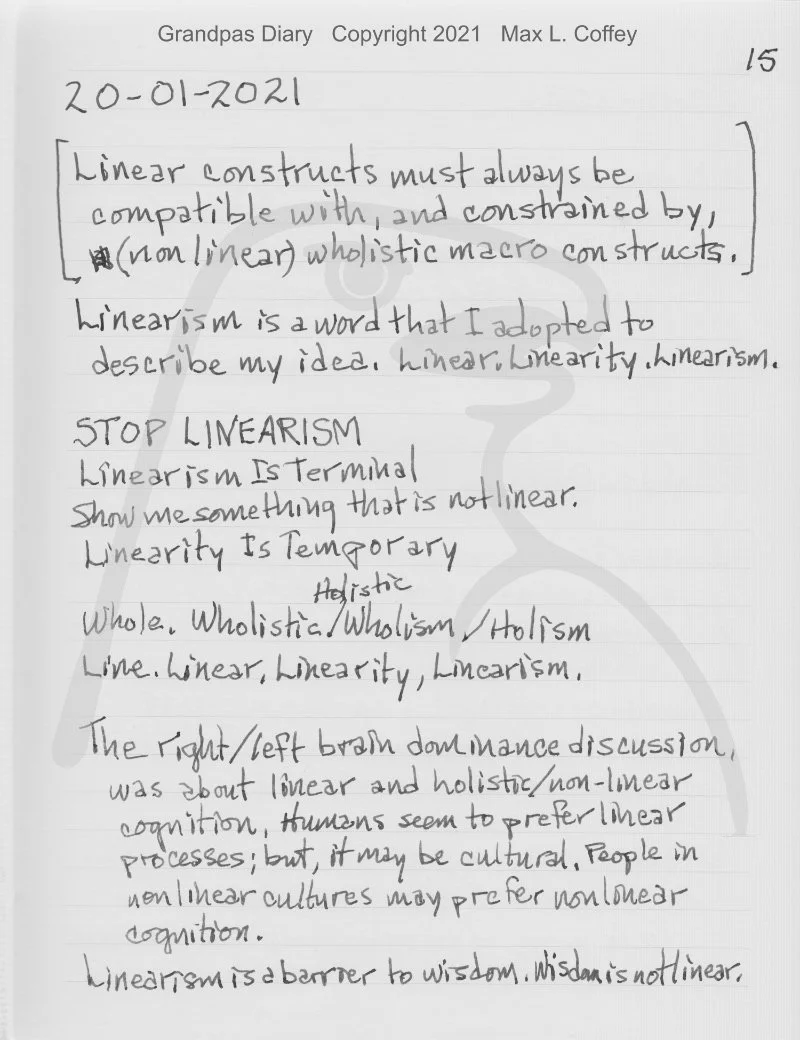 Grandpas Diary Copyright 2021 Max L. Coffey
15
20-01-2021
[Linear constructs must always be
compatible with, and constrained by,
(nonlinear) wholistic macro constructs.]
Linearism is a word that I adopted to
describe my idea. Linear. Linearity. Linearism.
STOP LINEARISM
Linearism Is Terminal
Show me something that is not linear.
Linearity Is Temporary
Holistic
Whole. Wholistic./Wholism/Holism
Line. Linear, Linearity, Linearism.
The right/left brain dominance discussion,
was about linear and holistic/non-linear
cognition, Humans seem to prefer linear
processes; but, it may be cultural. People in
nonlinear cultures may prefer nonlinear
cognition.
Linearism is a barrier to wisdom. Wisdom is not linear.